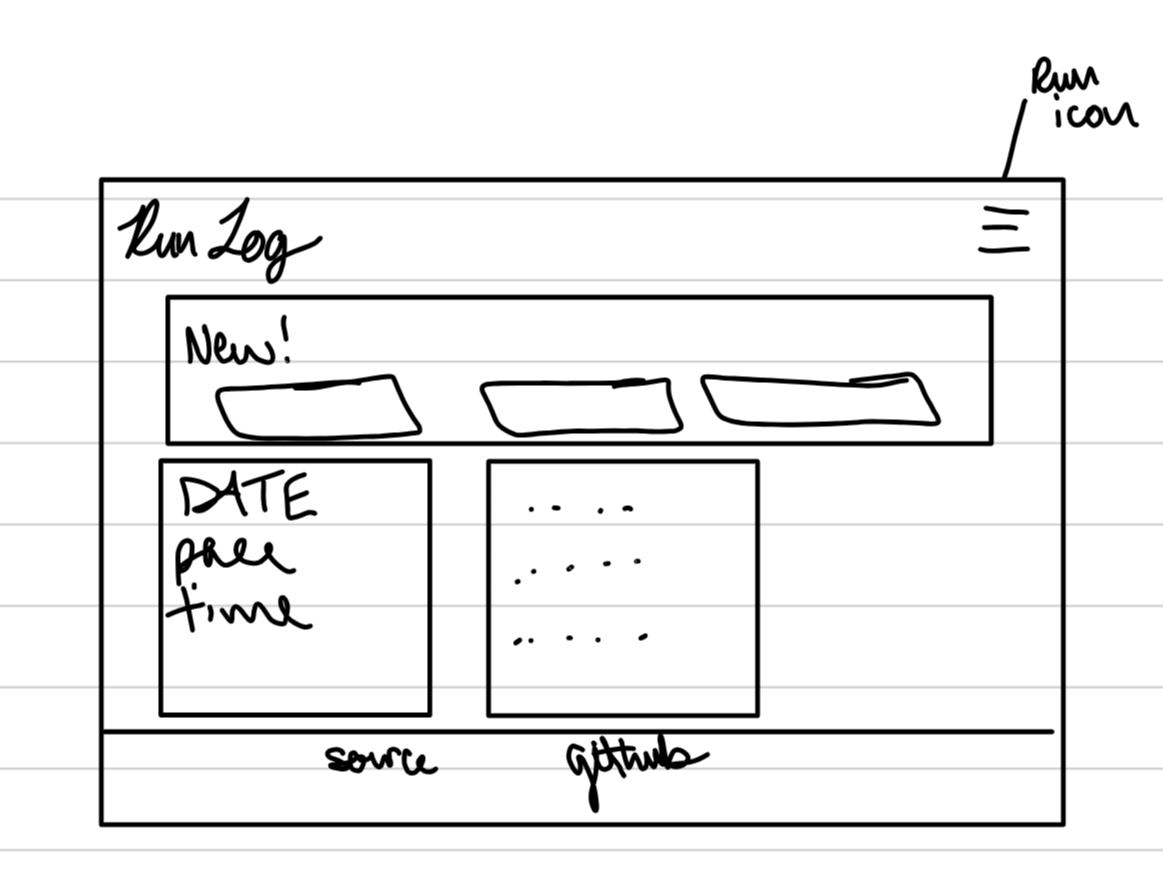 Run
icon
Run Log
New!
DATE
pace
time
source
github